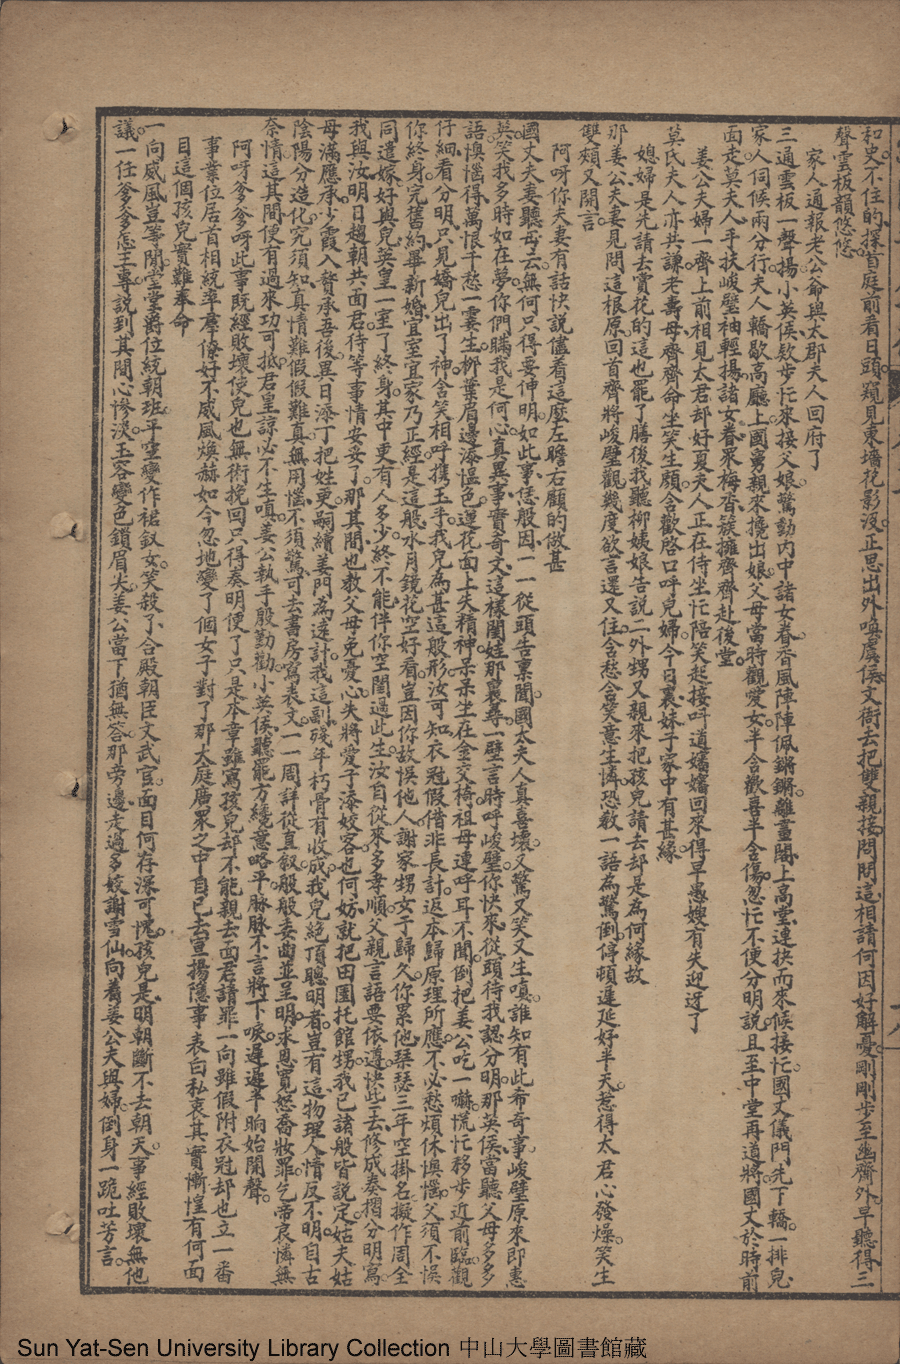 和史不住的探首庭前看日頭窺見東墻花影没正思出外喚虞侯文衙去把雙親接問問這相請何因好解憂剛剛步至幽齋外早聽得三
聲雲板韻悠悠
家人通報老公爺與太郡夫人回府了
三通雲板一聲揚小英侯欵步忙來接父娘驚動内中諸女眷香風陣陣佩鏘鏘離畫閣上高堂連抉而來候接忙國丈儀門先下轎一排兒
家人伺候兩分行夫人轎歇高廳上國舅親來攙出娘父母當時觀愛女半含歡喜半含傷忽忙不便分明説且至中堂再道將國丈於時前
面走莫夫人手扶峻壁袖輕揚諸女眷眾梅香簇擁齊齊赴後堂
姜公夫婦一齊上前相見太君却好夏夫人正在侍坐忙陪笑起接呌道嬸嬸回來得早愚嫂有失迎迓了
莫氏夫人亦共謙老壽母齊齊命坐笑生顔含歡啓口呼兒婦今日裏妹子家中有甚緣
媳婦是先請去賞花的這也罷了膳後我聽柳姨娘告説二外甥又親來把孩兒請去却是為何緣故
那姜公夫妻見問這根原回首齊將峻壁觀幾度欲言還又住含愁含笑意生憐恐教一語為驚倒停頓遲延好半天惹得太君心發燥笑生
雙頰又開言
阿呀你夫妻有話快説儘看這麽左瞻右顧的做甚
國丈夫妻聽母云無何只得要伸明如此事恁般因一一從頭告禀聞國太夫人真喜壞又驚又笑又生嗔誰知有此希奇事峻壁原來即惠
英笑我多時如在夢你們瞞我是何心真異事實奇文這樣閨娃那裏尋一壁言時呼峻壁你快來從頭待我認分明那英侯當聽父母多多
語懊惱得萬恨千愁一霎生柳葉眉邊添愠色蓮花面上失精神呆呆坐在金交椅祖母連呼耳不聞倒把姜公吃一嚇慌忙移步近前臨觀
仔細看分明只見嬌兒出了神含笑相呼携玉手我兒為甚這般形汝可知衣冠假借非長計返本歸原理所應不必愁煩休懊惱父須不悞
你終身完舊約畢新婚宜室宜家乃正經是這般水月鏡花空好看豈因你故悞他人謝家甥女于歸久你累他琹瑟三年空掛名擬作周全
同遣嫁好與兒英皇一室了終身其中更有人多少終不能伴你空閨過此生汝自從來多孝順父親言語要依遵快此去修成奏摺分明寫
我與汝明日趨朝共面君待等事情妥妥了那其間也教父母免憂心失將愛子添姣客也何妨就把田園托館甥我已諸般皆説定姑夫姑
母滿應承少霞入贅承吾後異日添丁把姓更嗣續姜門為遠計我這副殘年朽骨有收成我兒絶頂聰明者豈有這物理人情反不明自古
陰陽分造化究須知真情難假假難真無用惱不須驚可去書房寫表文一一周詳從直叙般般委曲並呈明求恩寬恕喬妝罪乞帝哀憐無
奈情這其間便有過來功可抵君皇諒必不生嗔姜公執手殷勤勸小英侯聽罷方纔意略平脉脉不言將下唳遲遲半晌始開聲
阿呀爹爹呀此事既經敗壞使兒也無術挽回只得奏明便了只是本章雖寫孩兒却不能親去面君請罪一向雖假附衣冠却也立一番
事業位居首相統率羣僚好不威風煥赫如今忽地變了個女子對了那大庭廣眾之中自已去宣揚隱事表白私衷其實慚惶有何面
目這個孩兒實難奉命
一向威風豈等閒堂堂爵位統朝班平空變作裙釵女笑殺了合殿朝臣文武官面目何存深可愧孩兒是明朝斷不去朝天事經敗壞無他
議一任爹爹怎主專説到其間心慘淡玉容變色鎖眉尖姜公當下猶無答那旁邊走過多姣謝雪仙向着姜公夫與婦倒身一跪吐芳言
Sun Yat-Sen University Library Collection 中山大學圖書館藏